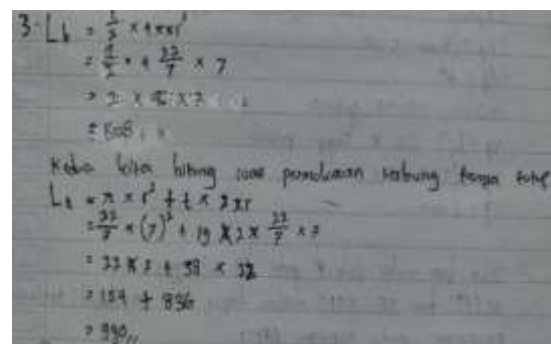 3. L½ = ½ × 4πr²
= ½ × 4 22/7 × 7
= 2 × × 7
= 308
Kedua kita hitung luas permukaan tabung tanpa tutup
Lt = π × r² + t × 2πr
= 22/7 × (7)² + 19 × 2 × 22/7 × 7
= 22 × 7 + 38 × 22
= 154 + 836
= 990,,